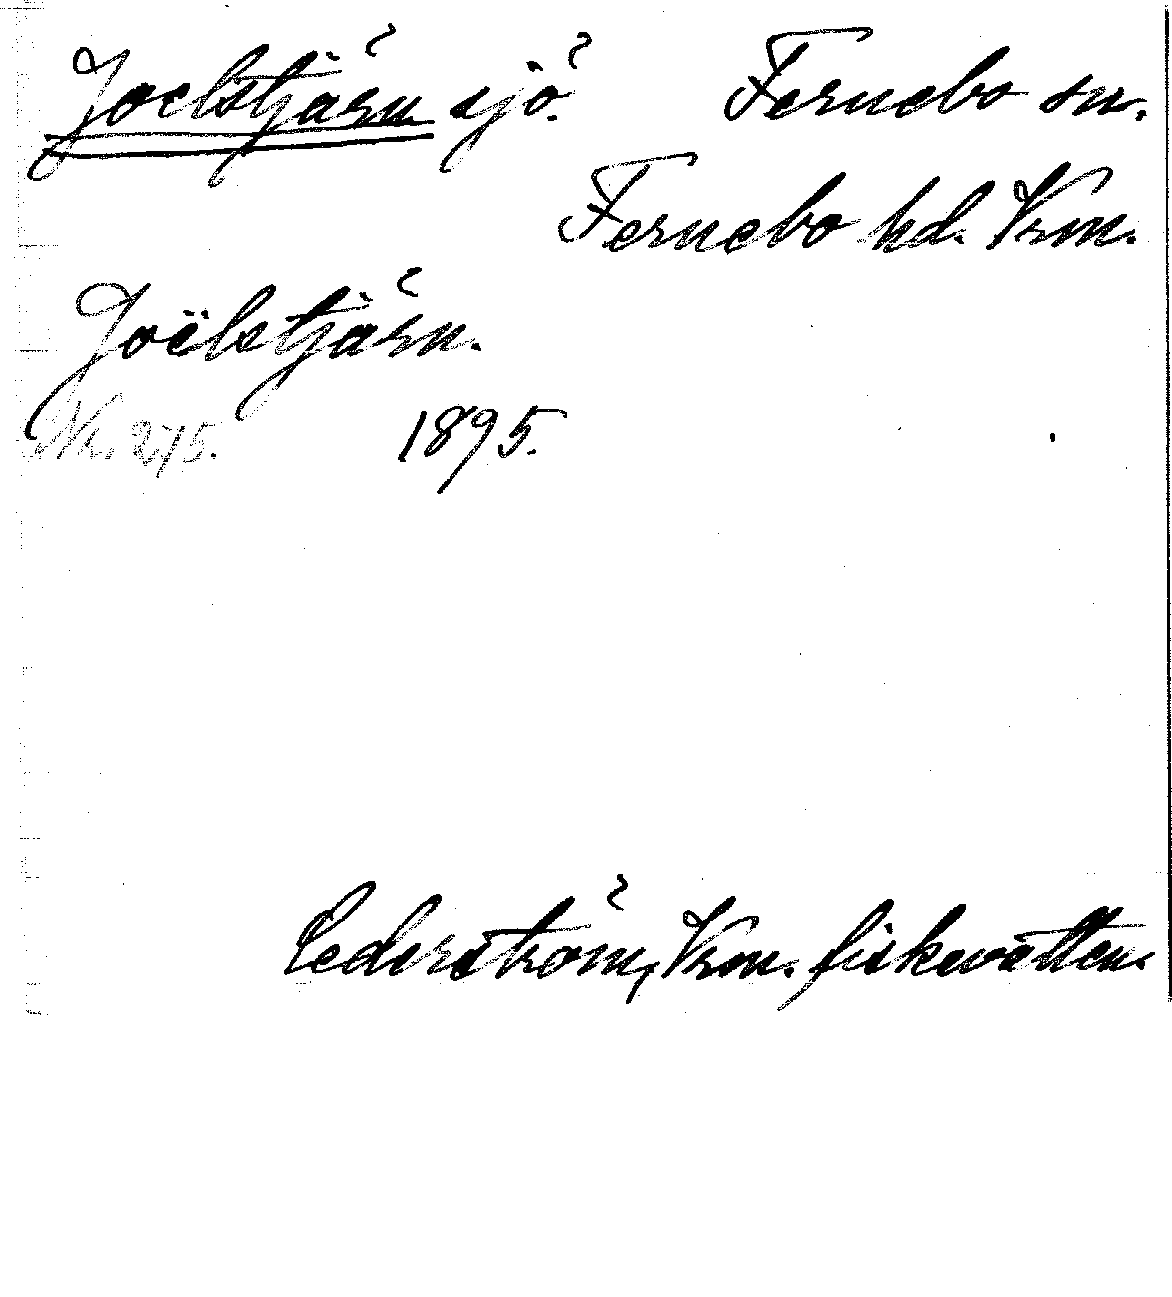 Joelstjärn sjö. Fernebo sn.
Fernebo hd. Vrm.
Joëlstjärn.
Nr. 275. 1895.
Cederström, Vrm. fiskevatten.